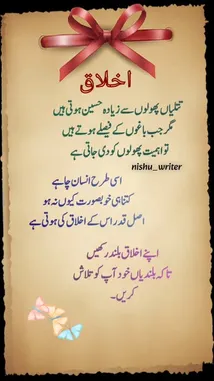 اخلاق
تتلیاں پھولوں سے زیادہ حسین ہوتی ہیں
مگر جب باغوں کے فیصلے ہوتے ہیں
تو اہمیت پھولوں کو دی جاتی ہے
nishu_writer
اسی طرح انسان چاہے
کتنا ہی خوبصورت کیوں نہ ہو
اصل قدر اس کے اخلاق کی ہوتی ہے
اپنے اخلاق بلند رکھیں
تاکہ بلندیاں خود آپ کو تلاش
کریں۔